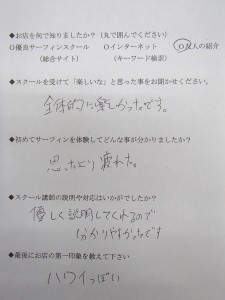 ◆お店を何で知りましたか?(丸で囲んでください)
O優良サーフィンスクール　Oインターネット　O友人の紹介
(総合サイト)　(キーワード検索)
◆スクールを受けて「楽しいな」と思った事をお聞かせください。
全体的に楽しかったです。
◆初めてサーフィンを体験してどんな事が分かりましたか?
思ったより疲れた。
◆スクール講師の説明や対応はいかがでしたか?
優しく説明してくれるので
分かりやすかったです
◆最後にお店の第一印象を教えて下さい
ハワイっぽい